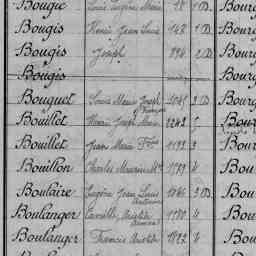 Bougue Louis Eugène Marie 18 1 D. Bourg
Bougis Henri Jean Louis 148 1 D. Bourg
Bougis Joseph 894 2 D. Bourg
Bougis Bourg
Bouquet Louis Marie Joseph 1045 2 D. Bourg
François
Bouillot Henri Joseph Marie 2242 5 Bour
Bouillet Jean Marie 1192 3 Bou
Bouillon Charles Maurice 1799 4 Bou
Boulaire Eugène Jean Louis 1046 2 D. Bou
Antoine
Boulanger Camille Aristide 1780 4 Bou
Boulanger Francis Aristide 1922 4 Bou